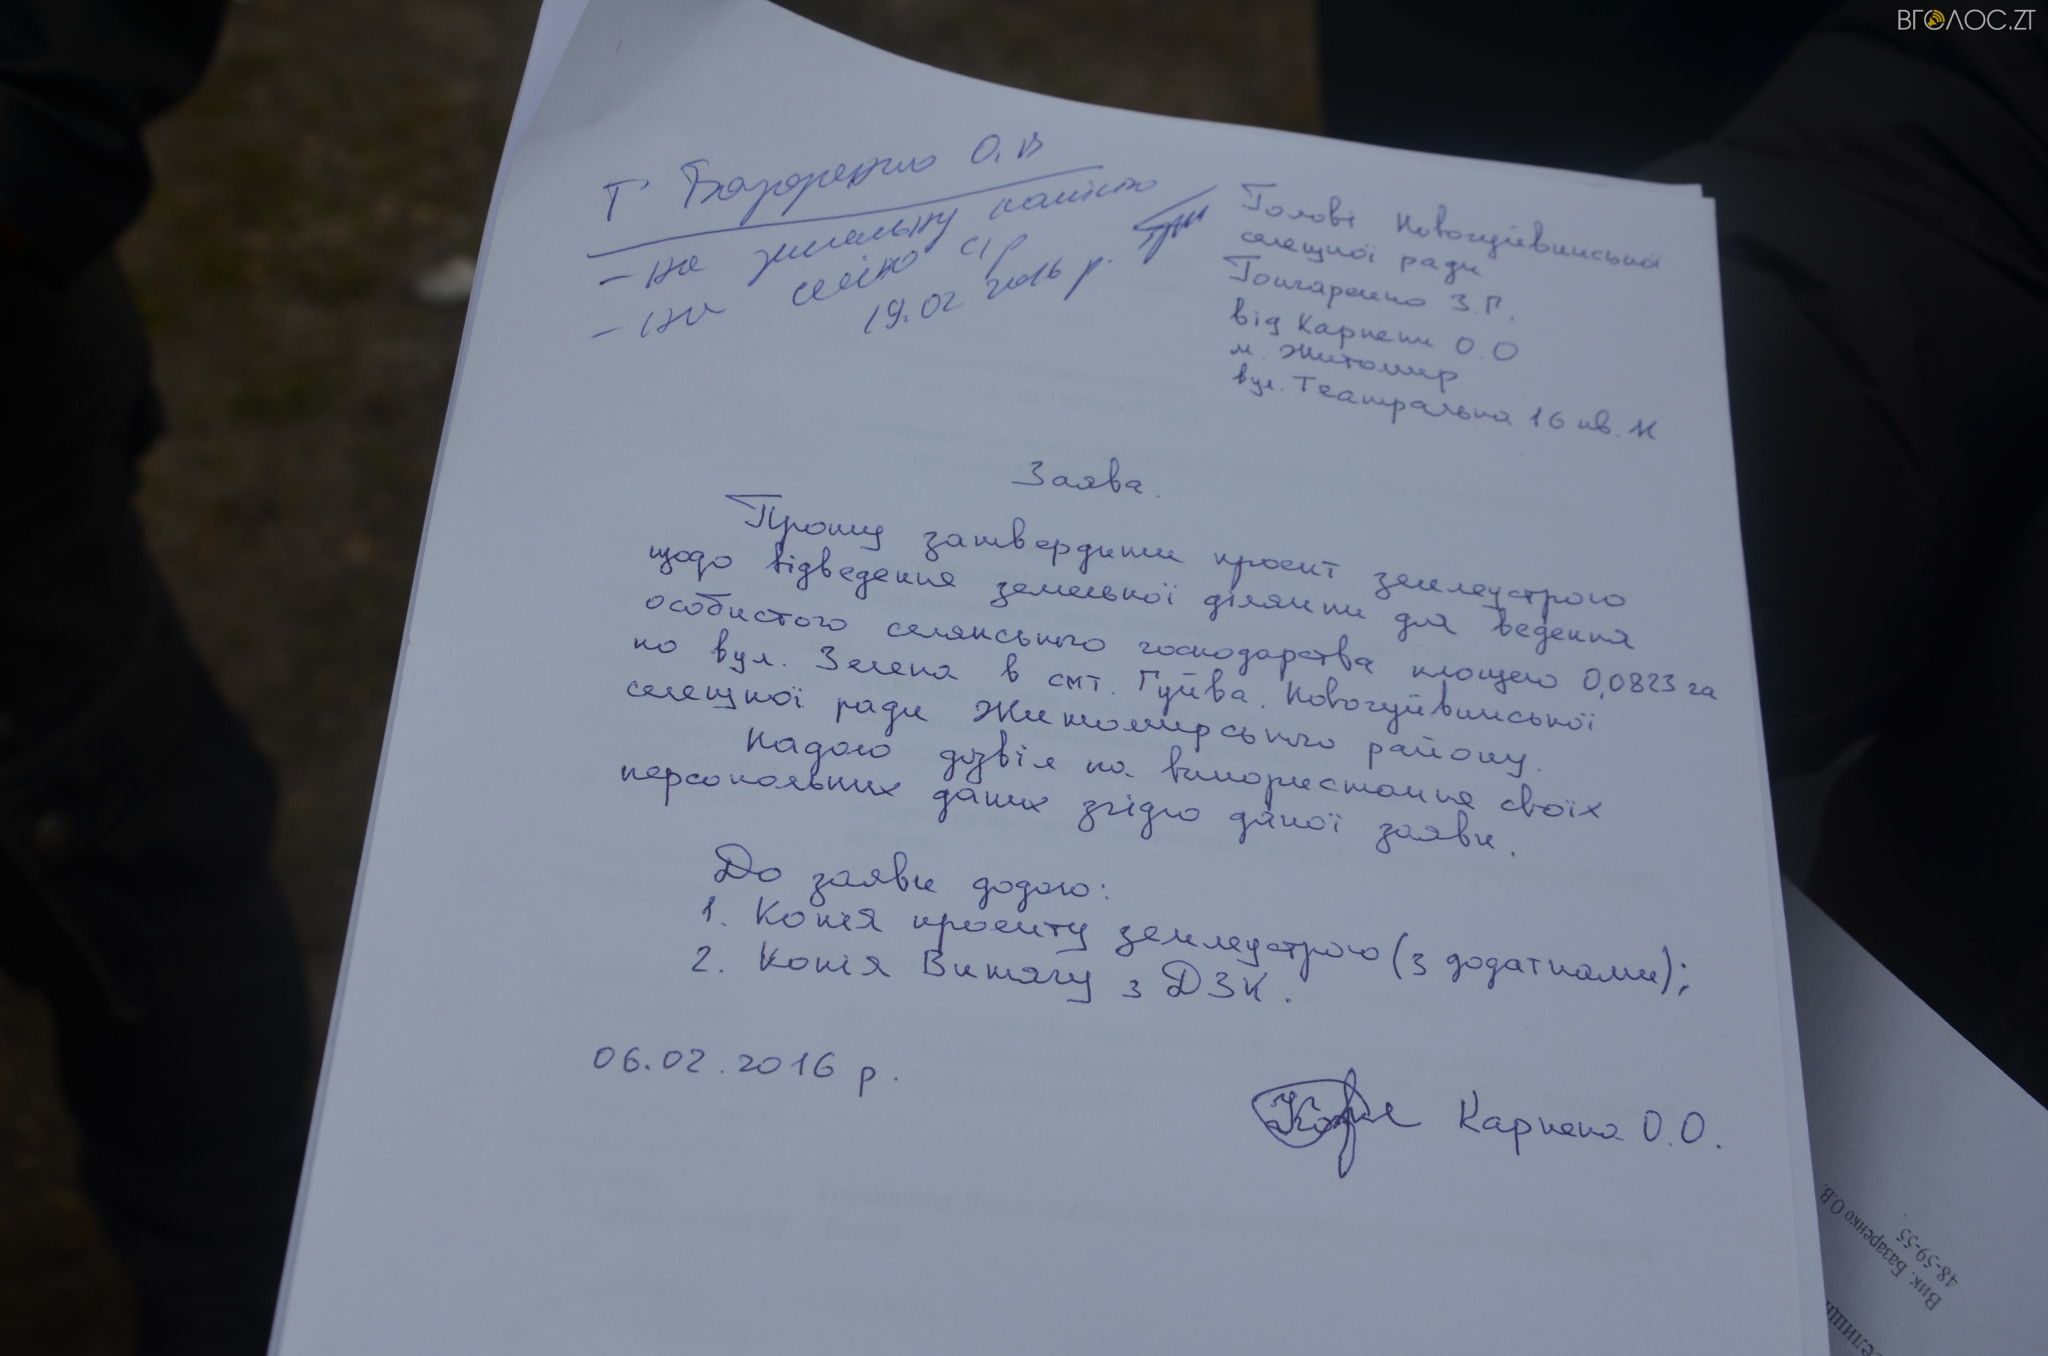 ВГОЛОС.ZT
Т Базаренко О.В
- на земельну комісію
- на сесію с/р
19.02 2016 р.
Голові Новогуйвинської
селещної ради
Гончаренко З.Г.
від Карпеки О.О
м. Житомир
вул. Театральна 16 кв.
Заява.
Прошу затвердити проект землеустрою
щодо відведення земельної ділянки для ведення
особистого селянського господарства площею 0,0823 га
по вул. Зелена в смт. Гуйва. Новогуйвинської
селещної ради Житомирського району.
Надаю дозвіл на використання своїх
персональних даних згідно даної заяви.
До заяви додаю:
1. Копія проекту землеустрою (з додатками);
2. Копія Витягу з ДЗК.
06.02.2016 р.
Карпека О.О.
Вик. Базаренко О.В.
48-59-55